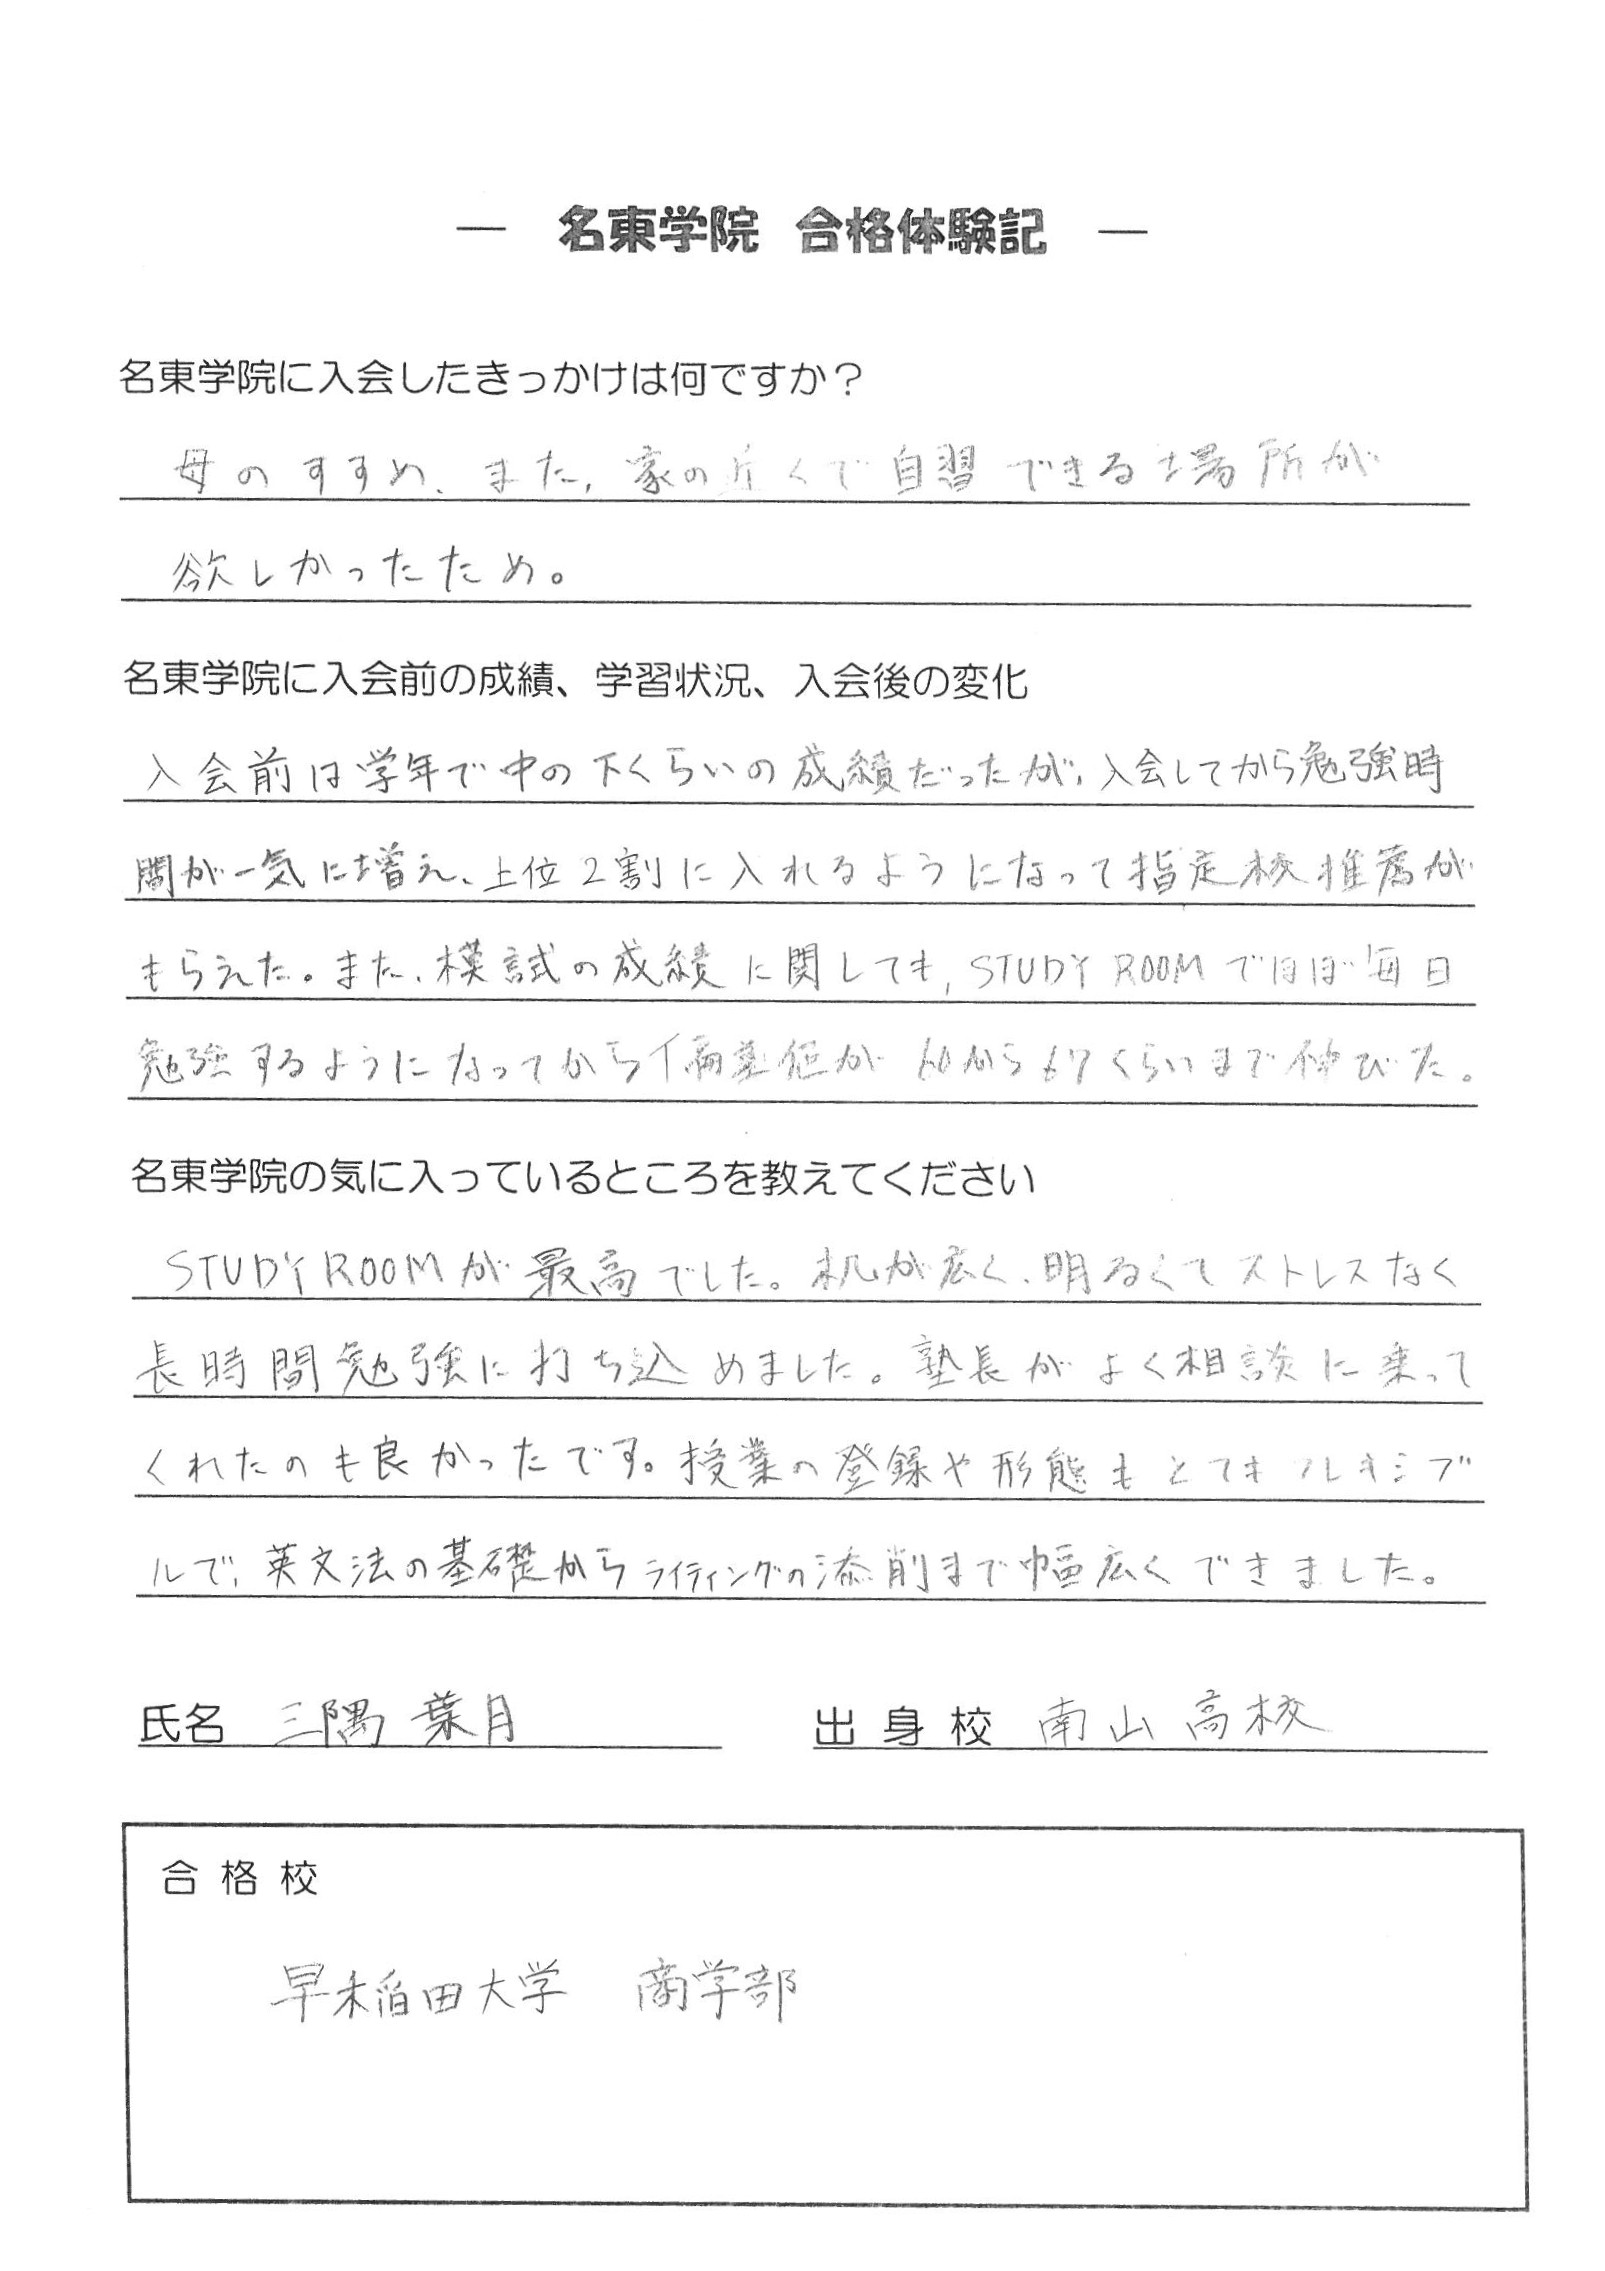 — 名東学院 合格体験記 —
名東学院に入会したきっかけは何ですか？
母のすすめ、また、家の近くで自習できる場所が
欲しかったため。
名東学院に入会前の成績、学習状況、入会後の変化
入会前は学年で中の下くらいの成績だったが、入会してから勉強時
間が一気に増え、上位2割に入れるようになって指定校推薦が
もらえた。また、模試の成績に関しても、STUDY ROOMでほぼ毎日
勉強するようになってから偏差値が60から67くらいまで伸びた。
名東学院の気に入っているところを教えてください
STUDY ROOMが最高でした。机が広く、明るくてストレスなく
長時間勉強に打ち込めました。塾長がよく相談に乗って
くれたのも良かったです。授業の登録や形態もとてもフレキシブ
ルで、英文法の基礎からライティングの添削まで幅広くできました。
氏名 三隅 葉月 出身校 南山高校
合格校
早稲田大学 商学部